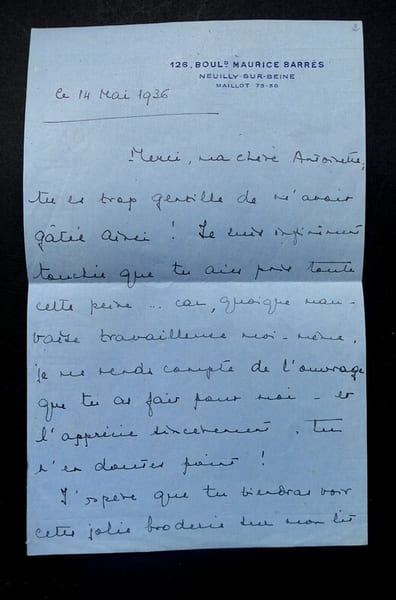 2
126, BOULD MAURICE BARRÈS
NEUILLY-SUR-SEINE
MAILLOT 73-38
Le 14 Mai 1936
Merci, ma chère Antoinette,
tu es trop gentille de m'avoir
gâtée ainsi ! Je suis infiniment
touchée que tu aies pris toute
cette peine ... car, quoique mau-
vaise travailleuse moi-même,
je me rends compte de l'ouvrage
que tu as fait pour moi - et
l'apprécie sincèrement, tu
n'en doutes point !
J'espère que tu viendras voir
cette jolie broderie sur mon lit